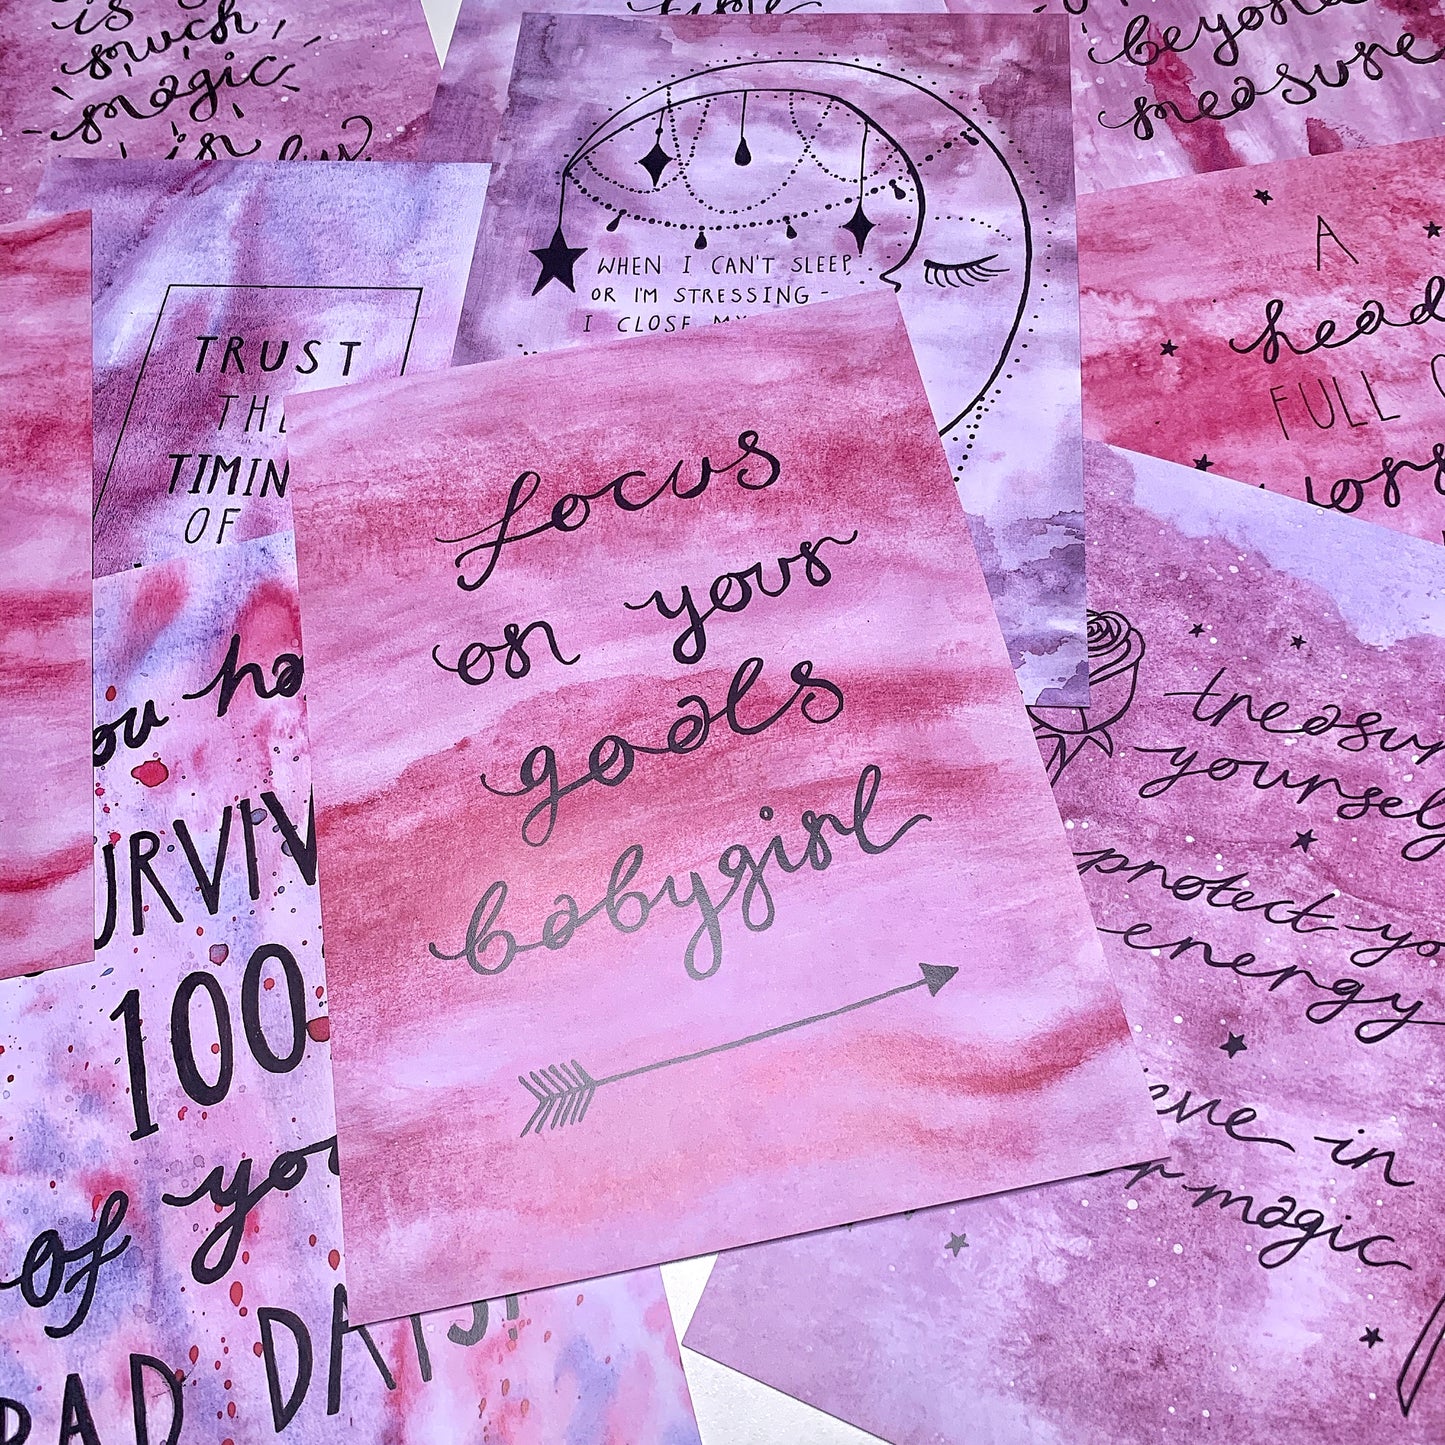 is
much
magic
in
beyond
measure
WHEN I CAN'T SLEEP,
OR I'M STRESSING -
I CLOSE MY
TRUST
THE
TIMIN
OF
A
head
FULL
focus
on your
goals
babygirl
you ha
SURVIV
100
of you
BAD DAYS!
treasure
yourself
protect yo
energy
in
magic